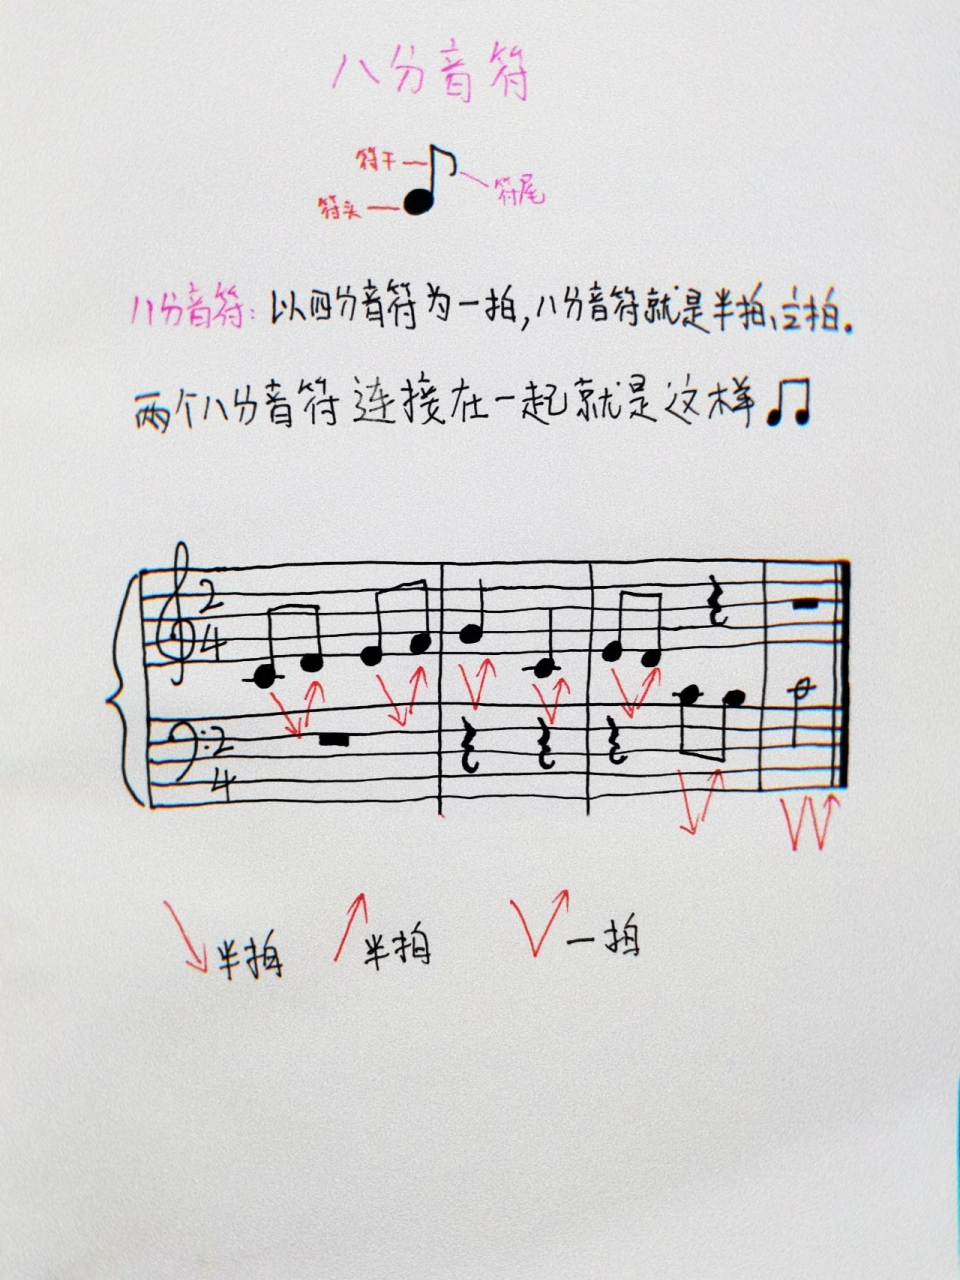 八分音符
符干
符尾
符头
八分音符:以四分音符为一拍,八分音符就是半拍、½拍.
两个八分音符连接在一起就是这样♫
2
4
2
4
半拍 半拍 一拍